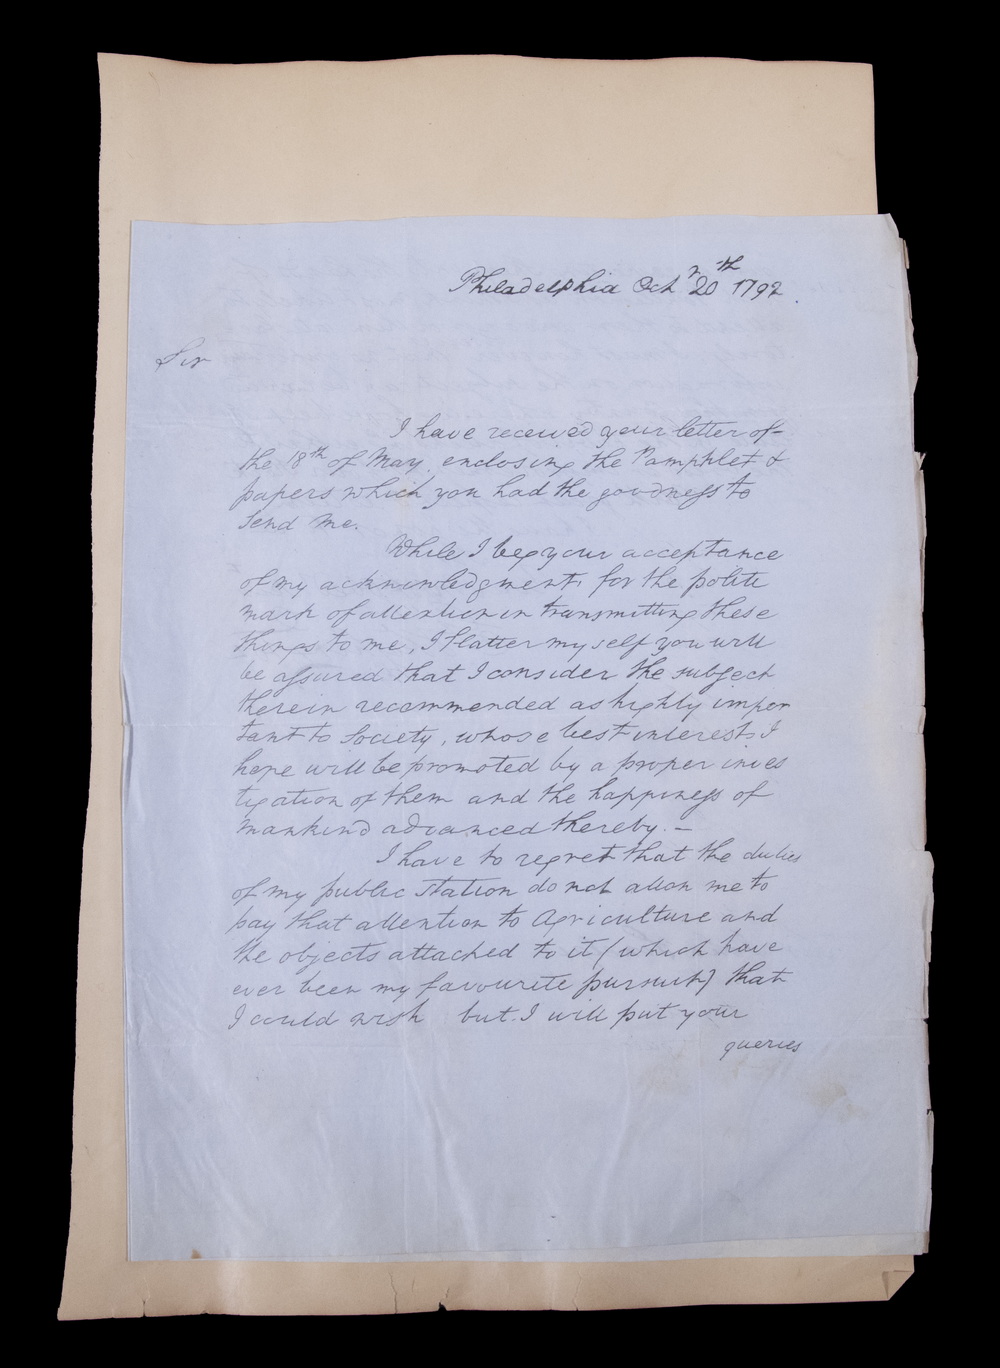 Philadelphia Octr 20th 1792
Sir
I have received your letter of
the 18th of May enclosing the Pamphlet &
papers which you had the goodness to
send me.
While I beg your acceptance
of my acknowledgment, for the polite
mark of attention in transmitting these
things to me, I flatter myself you will
be assured that I consider the subject
therein recommended as highly impor
tant to Society, whose best interests I
hope will be promoted by a proper inves
tigation of them and the happiness of
mankind advanced thereby. —
I have to regret that the duties
of my public station do not allow me to
pay that attention to Agriculture and
the objects attached to it (which have
ever been my favourite pursuit) that
I could wish but I will put your
queries